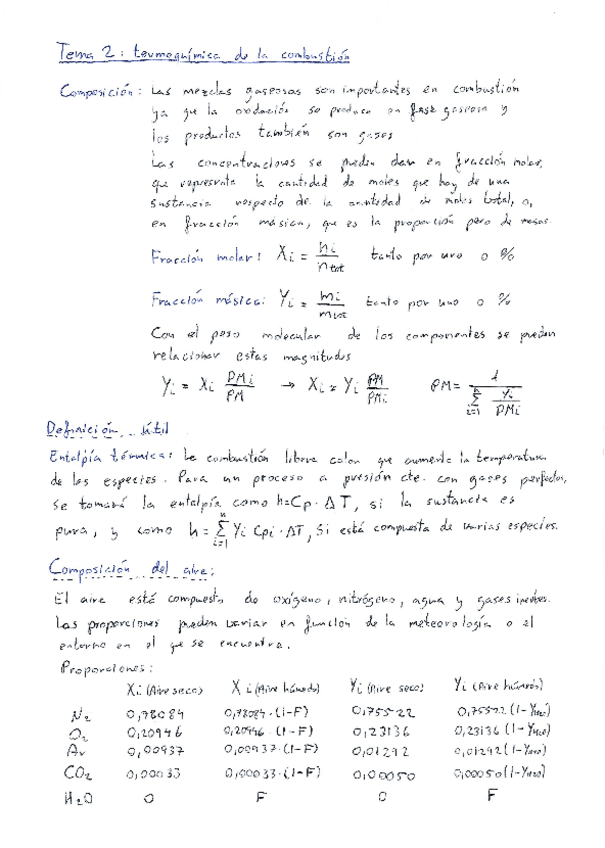 Tema 2: termoquímica de la combustión
Composición: Las mezclas gaseosas son importantes en combustión
ya que la oxidación se produce en fase gaseosa y
los productos también son gases
Las concentraciones se pueden dar en fracción molar,
que representa la cantidad de moles que hay de una
sustancia respecto de la cantidad de moles total, o,
en fracción másica, que es la proporción pero de masas.
Fracción molar: Xi = ni / ntot tanto por uno o %
Fracción másica: Yi = mi / mtot tanto por uno o %
Con el peso molecular de los componentes se pueden
relacionar estas magnitudes
Yi = Xi PMi / PM → Xi = Yi PM / PMi PM = 1 / Σ(i=1, n) Yi / PMi
Definición útil
Entalpía térmica: La combustión libera calor que aumenta la temperatura
de las especies. Para un proceso a presión cte. con gases perfectos,
se tomará la entalpía como h=Cp·ΔT, si la sustancia es
pura, y como h = Σ(i=1, n) Yi Cpi·ΔT, si está compuesta de varias especies.
Composición del aire:
El aire está compuesto de oxígeno, nitrógeno, agua y gases inertes.
Las proporciones pueden variar en función de la meteorología o el
entorno en el que se encuentra.
Proporciones:
Xi (Aire seco) Xi (Aire húmedo) Yi (Aire seco) Yi (Aire húmedo)
N2 0,78084 0,78084·(1-F) 0,75522 0,75522(1-YH2O)
O2 0,20946 0,20946·(1-F) 0,23136 0,23136(1-YH2O)
Ar 0,00937 0,00937·(1-F) 0,01292 0,01292(1-YH2O)
CO2 0,00033 0,00033·(1-F) 0,00050 0,00050(1-YH2O)
H2O 0 F 0 F